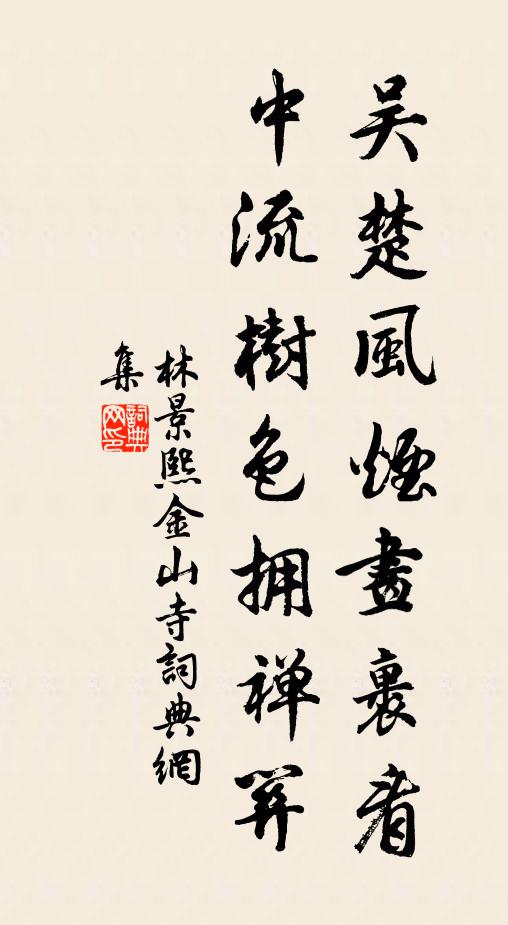 吴楚風煙畫裏看
中流樹色拥禅関
林景熙金山寺詞典網
集
詞典
网印